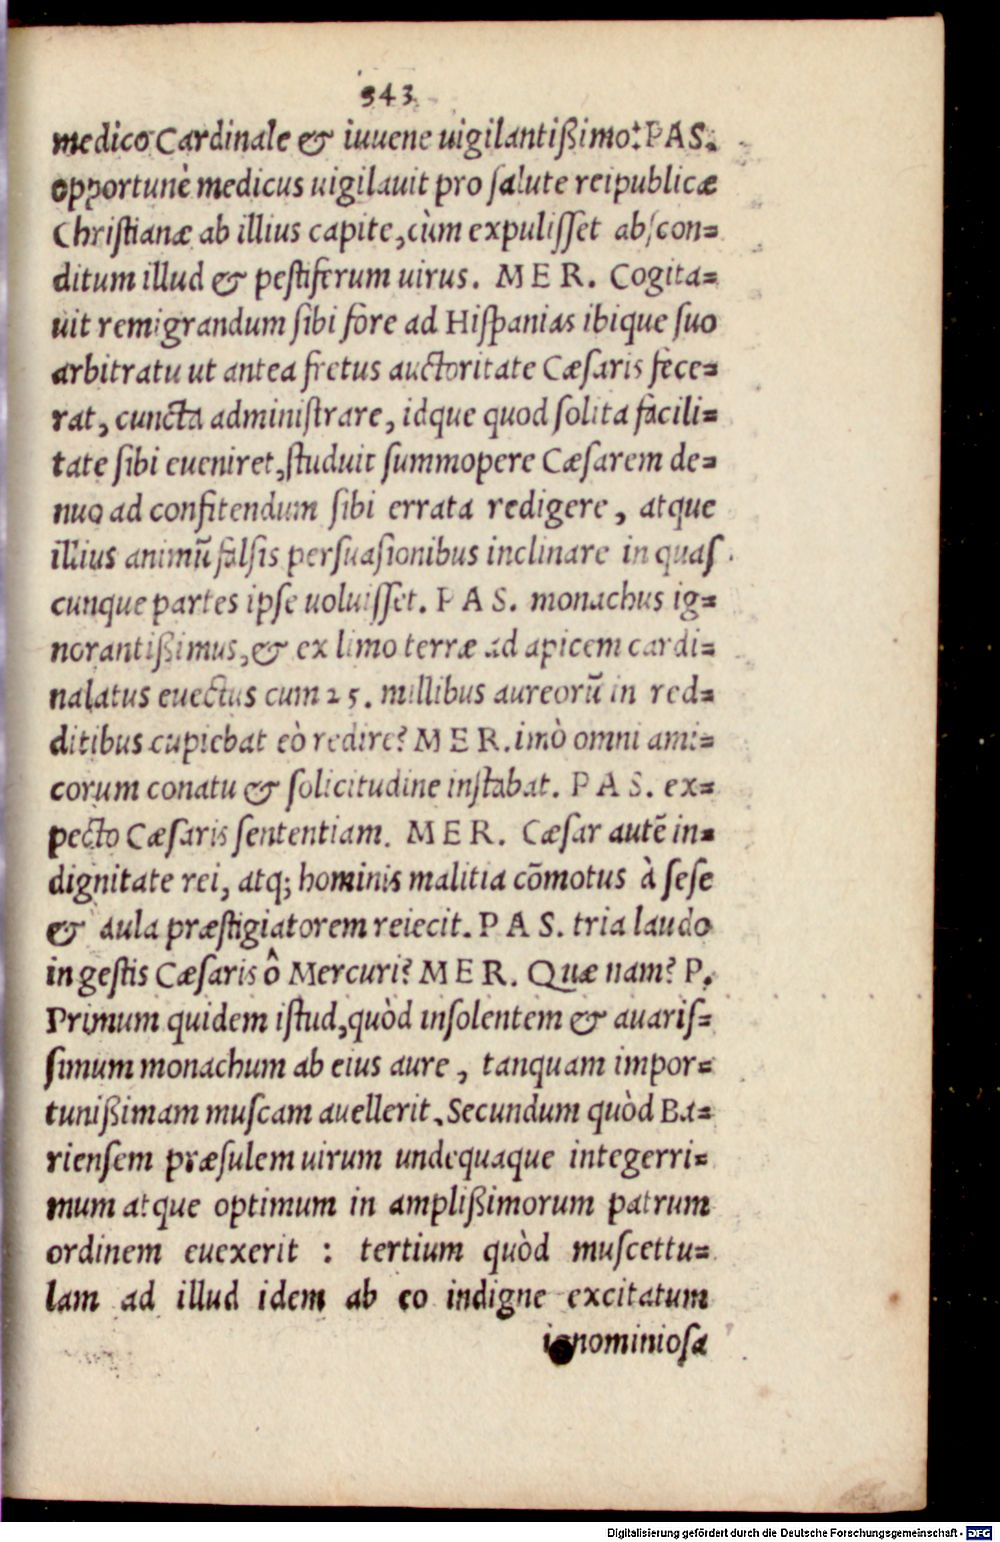 343
medico Cardinale & iuuene uigilantißimo? PAS.
opportunè medicus uigilauit pro ſalute reipublicæ
Chriſtianæ ab illius capite, cùm expuliſſet abſcon=
ditum illud & peſtiferum uirus. MER. Cogita=
uit remigrandum ſibi fore ad Hiſpanias ibique ſuo
arbitratu ut antea fretus auctoritate Cæſaris fece=
rat, cuncta adminiſtrare, idque quod ſolita facili=
tate ſibi eueniret, ſtuduit ſummopere Cæſarem de=
nuo ad confitendum ſibi errata redigere, atque
illius animū falſis perſuaſionibus inclinare in quaſ
cunque partes ipſe uoluiſſet. PAS. monachus ig=
norantißimus, & ex limo terræ ad apicem cardi=
nalatus euectus cum 25. millibus aureorū in red=
ditibus cupiebat eò redire? MER. imò omni ami=
corum conatu & ſolicitudine inſtabat. PAS. ex=
pecto Cæſaris ſententiam. MER. Cæſar autē in=
dignitate rei, atq; hominis malitia cōmotus à ſeſe
& aula præſtigiatorem reiecit. PAS. tria laudo
in geſtis Cæſaris ô Mercuri? MER. Quæ nam? P.
Primum quidem iſtud, quòd inſolentem & auariſ=
ſimum monachum ab eius aure, tanquam impor=
tunißimam muſcam auellerit. Secundum quòd Ba=
rienſem præſulem uirum undequaque integerri=
mum atque optimum in amplißimorum patrum
ordinem euexerit : tertium quòd muſcettu=
lam ad illud idem ab eo indigne excitatum
ignominioſa
Digitalisierung gefördert durch die Deutsche Forschungsgemeinschaft - DFG